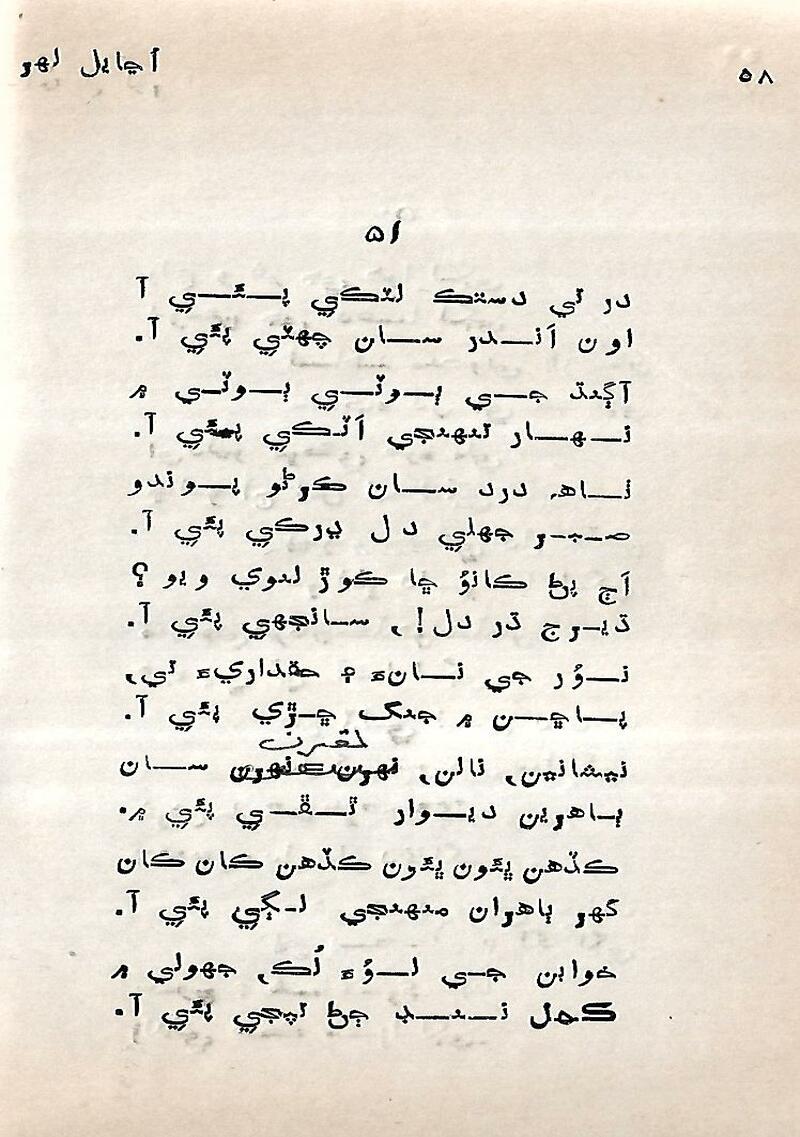 ۵۸
اڃايل لهر
۵۱
در تي دستڪ لٽڪي پئي آ
اون اَندر سان چهٽي پئي آ.
آڳنڌ جي ٻوٽي ٻوٽي ۾
نهار تنهنجي اَٽڪي پئي آ.
ناهہ درد سان ڪرڻو پوندو
صبر جهلي دل ڍرڪي پئي آ.
اَڄ پڻ ڪانؤُ ڇا ڪوڙ لنوي ويو ؟
ڌيرج ڌر دل!، سانجهي پئي آ.
نوُر جي نانءَ ۽ حقداريءَ تي،
پاڇن ۾ جنگ ڇڙي پئي آ.
لفظن
نيشانين، نالن، سان
ٻاهرين ديوار ٿڦي پئي ۾.
ڪڏهن ڀٽون ڀٽون ڪڏهن ڪان ڪان
گهر ٻاهران منهنجي لڳي پئي آ.
خوابن جي لوُءِ لُڪ، جهولي ۾
ڪمل ننڊ ڄڻ تپجي پئي آ.